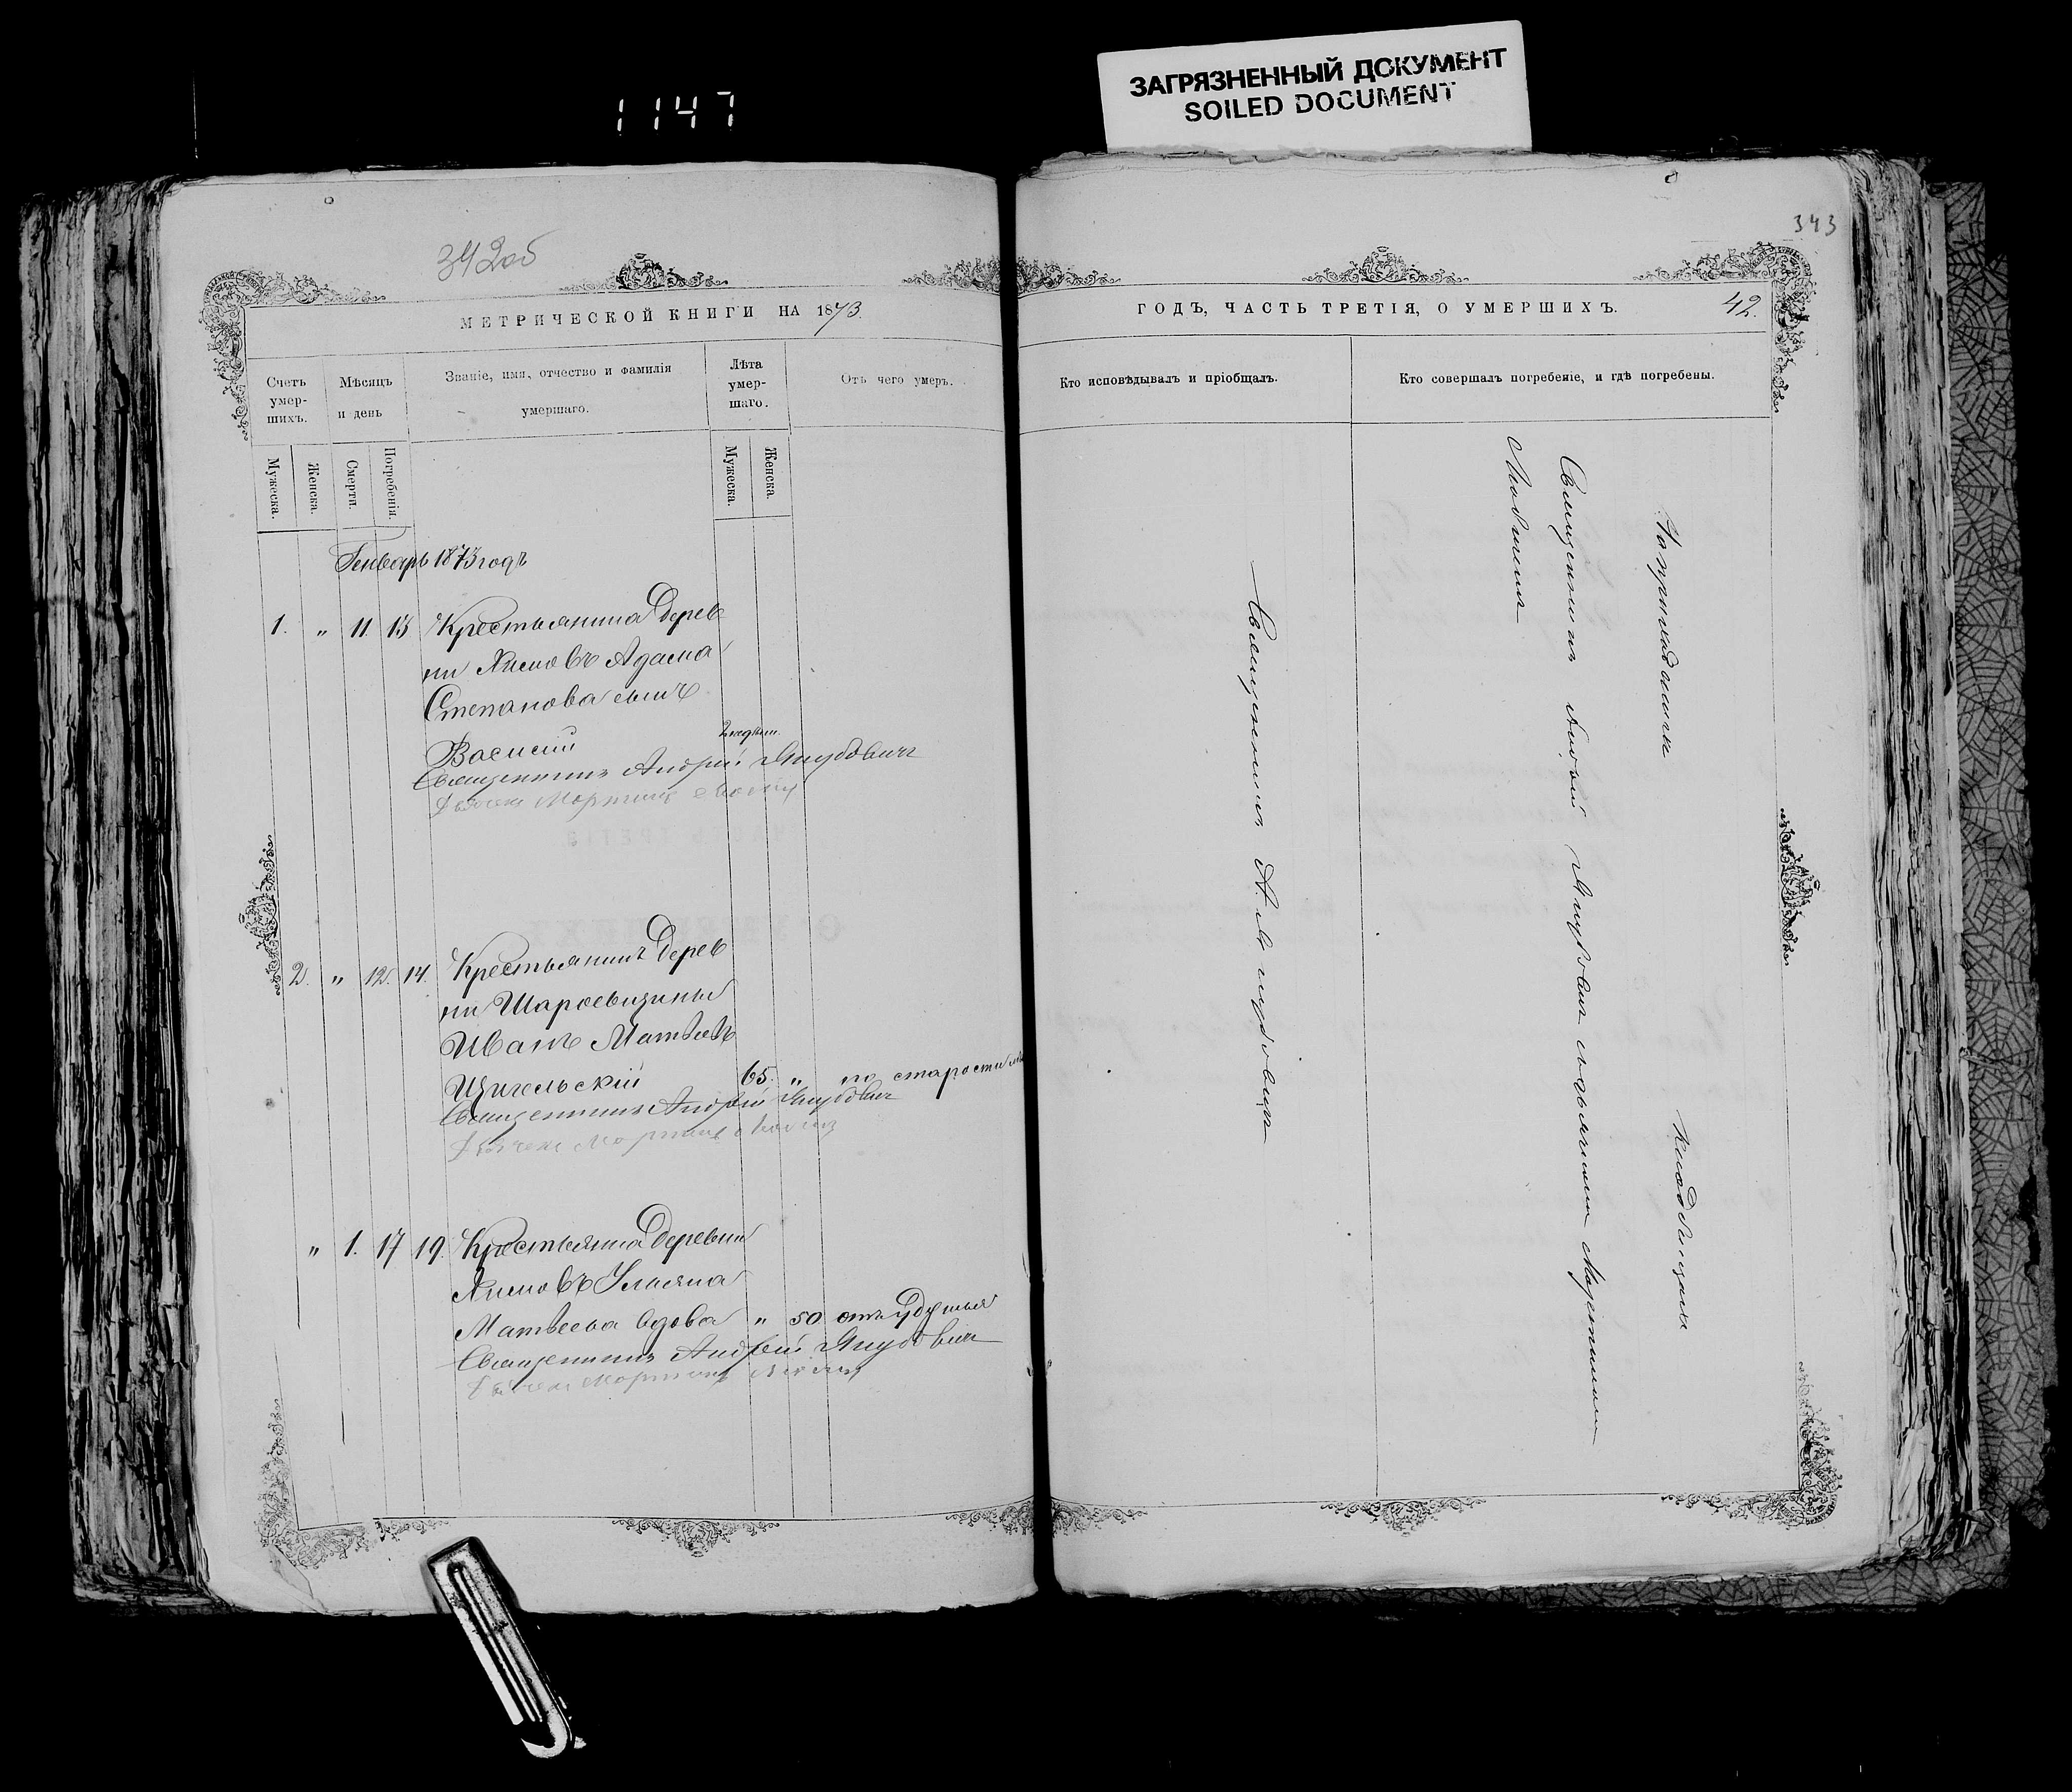 1147
ЗАГРЯЗНЕННЫЙ ДОКУМЕНТ
SOILED DOCUMENT
342об
343
МЕТРИЧЕСКОЙ КНИГИ НА 1873.
ГОДЪ, ЧАСТЬ ТРЕТІЯ, О УМЕРШИХЪ.
42.
Счетъ умер-шихъ.
Мѣсяцъ и день
Званіе, имя, отчество и фамилія умершаго.
Лѣта умер-шаго.
Отъ чего умеръ.
Кто исповѣдывалъ и пріобщалъ.
Кто совершалъ погребеніе, и гдѣ погребены.
Мужеска.
Женска.
Смерти.
Погребенія.
Мужеска.
Женска.
Генварь 1873 годъ
1. " 11. 13 Крестьянина дерев
ни Адама
Степанова сынъ
Василій
2 недѣли.
Священникъ Андрей Якубовичъ
Дьячекъ Мартинъ
2. " 12. 14. Крестьянинъ дерев
ни
Иванъ Матѣевъ
65. " по старости лѣтъ
Священникъ Андрей Якубовичъ
Дьячекъ Мартинъ
" 1. 17 19. Крестьянка деревни
Ульяна
Матвеева вдова " 50 отъ удушья
Священникъ Андрей Якубовичъ
Дьячекъ Мартинъ
Священникъ А. Якубовичъ
На приходскомъ кладбищѣ
Священникъ Андрей Якубовичъ